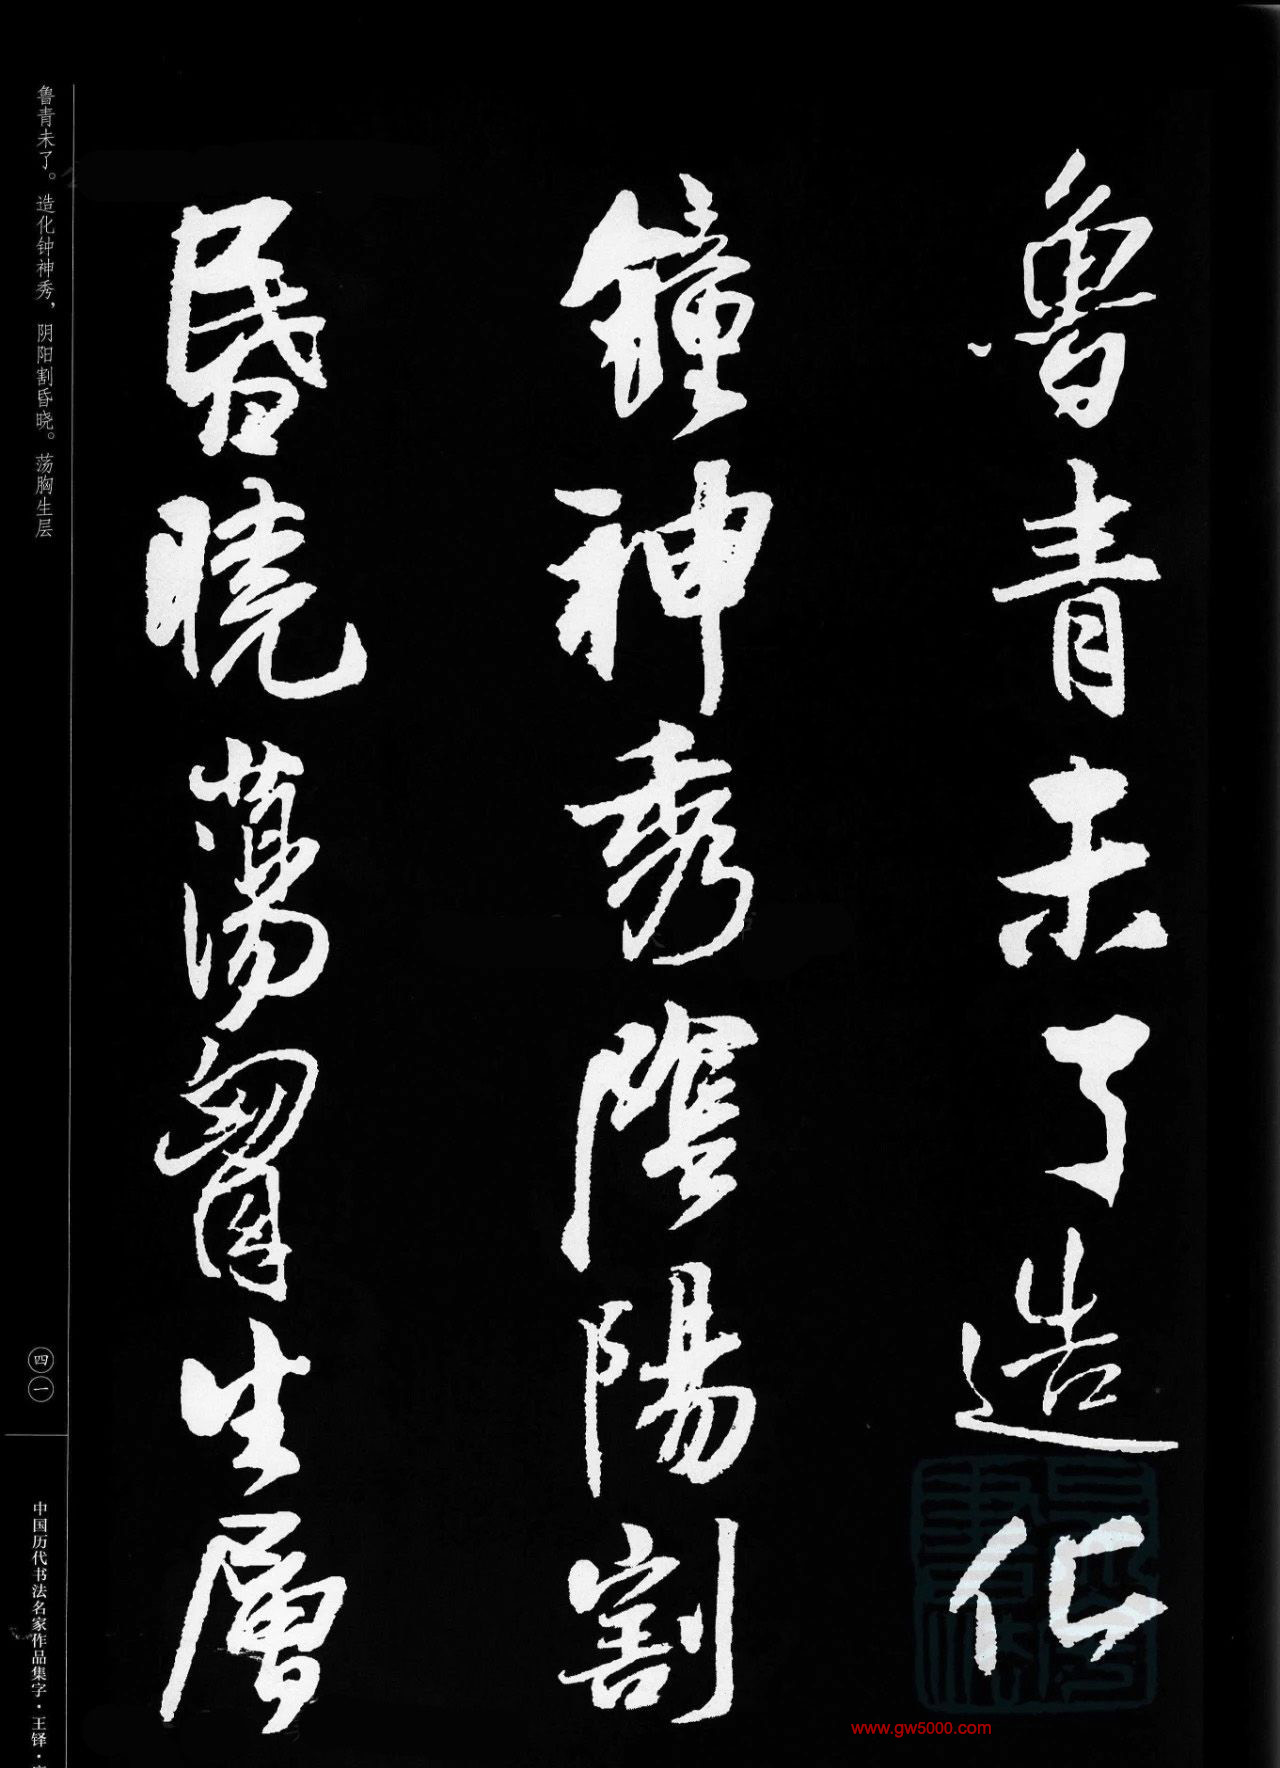 魯青未了造化
鐘神秀陰陽割
昏曉蕩胷生層
鲁青未了。造化钟神秀，阴阳割昏晓。荡胸生层
四一
中国历代书法名家作品集字·王铎·
www.gw5000.com